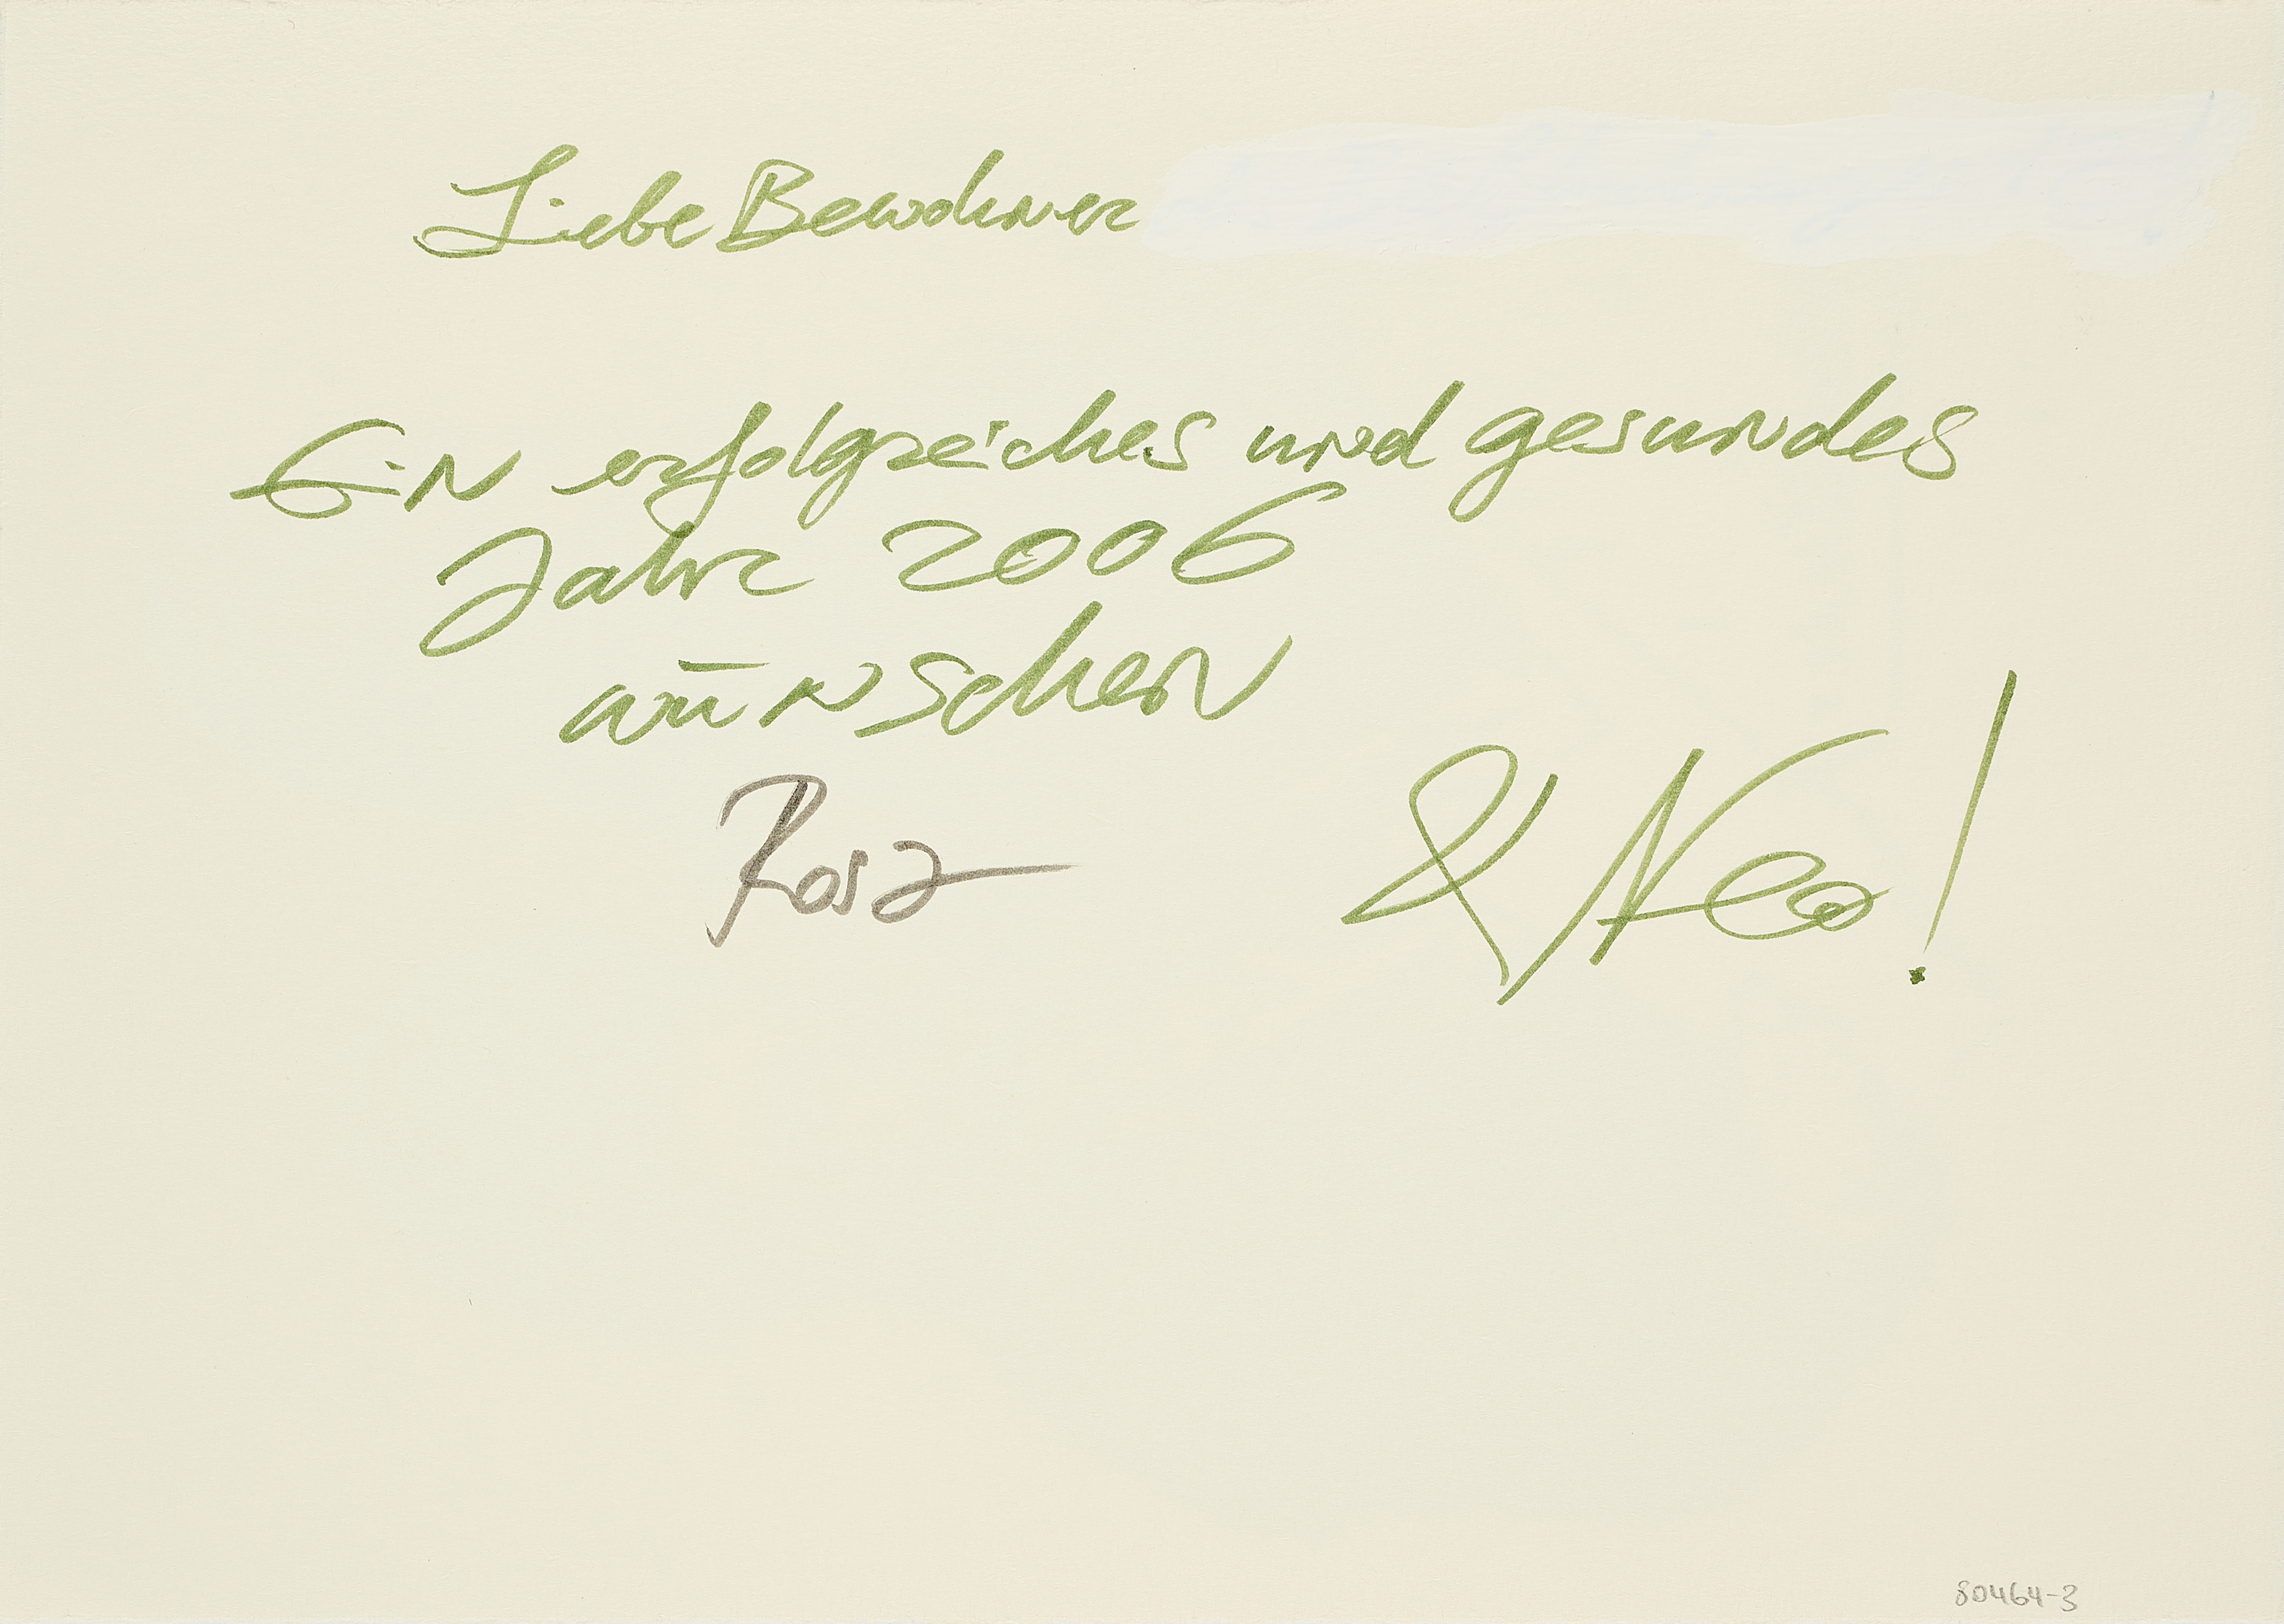 Liebe Bewohner
Ein erfolgreiches und gesundes
Jahr 2006
wünschen
Rosa
& Neo!
80464-3